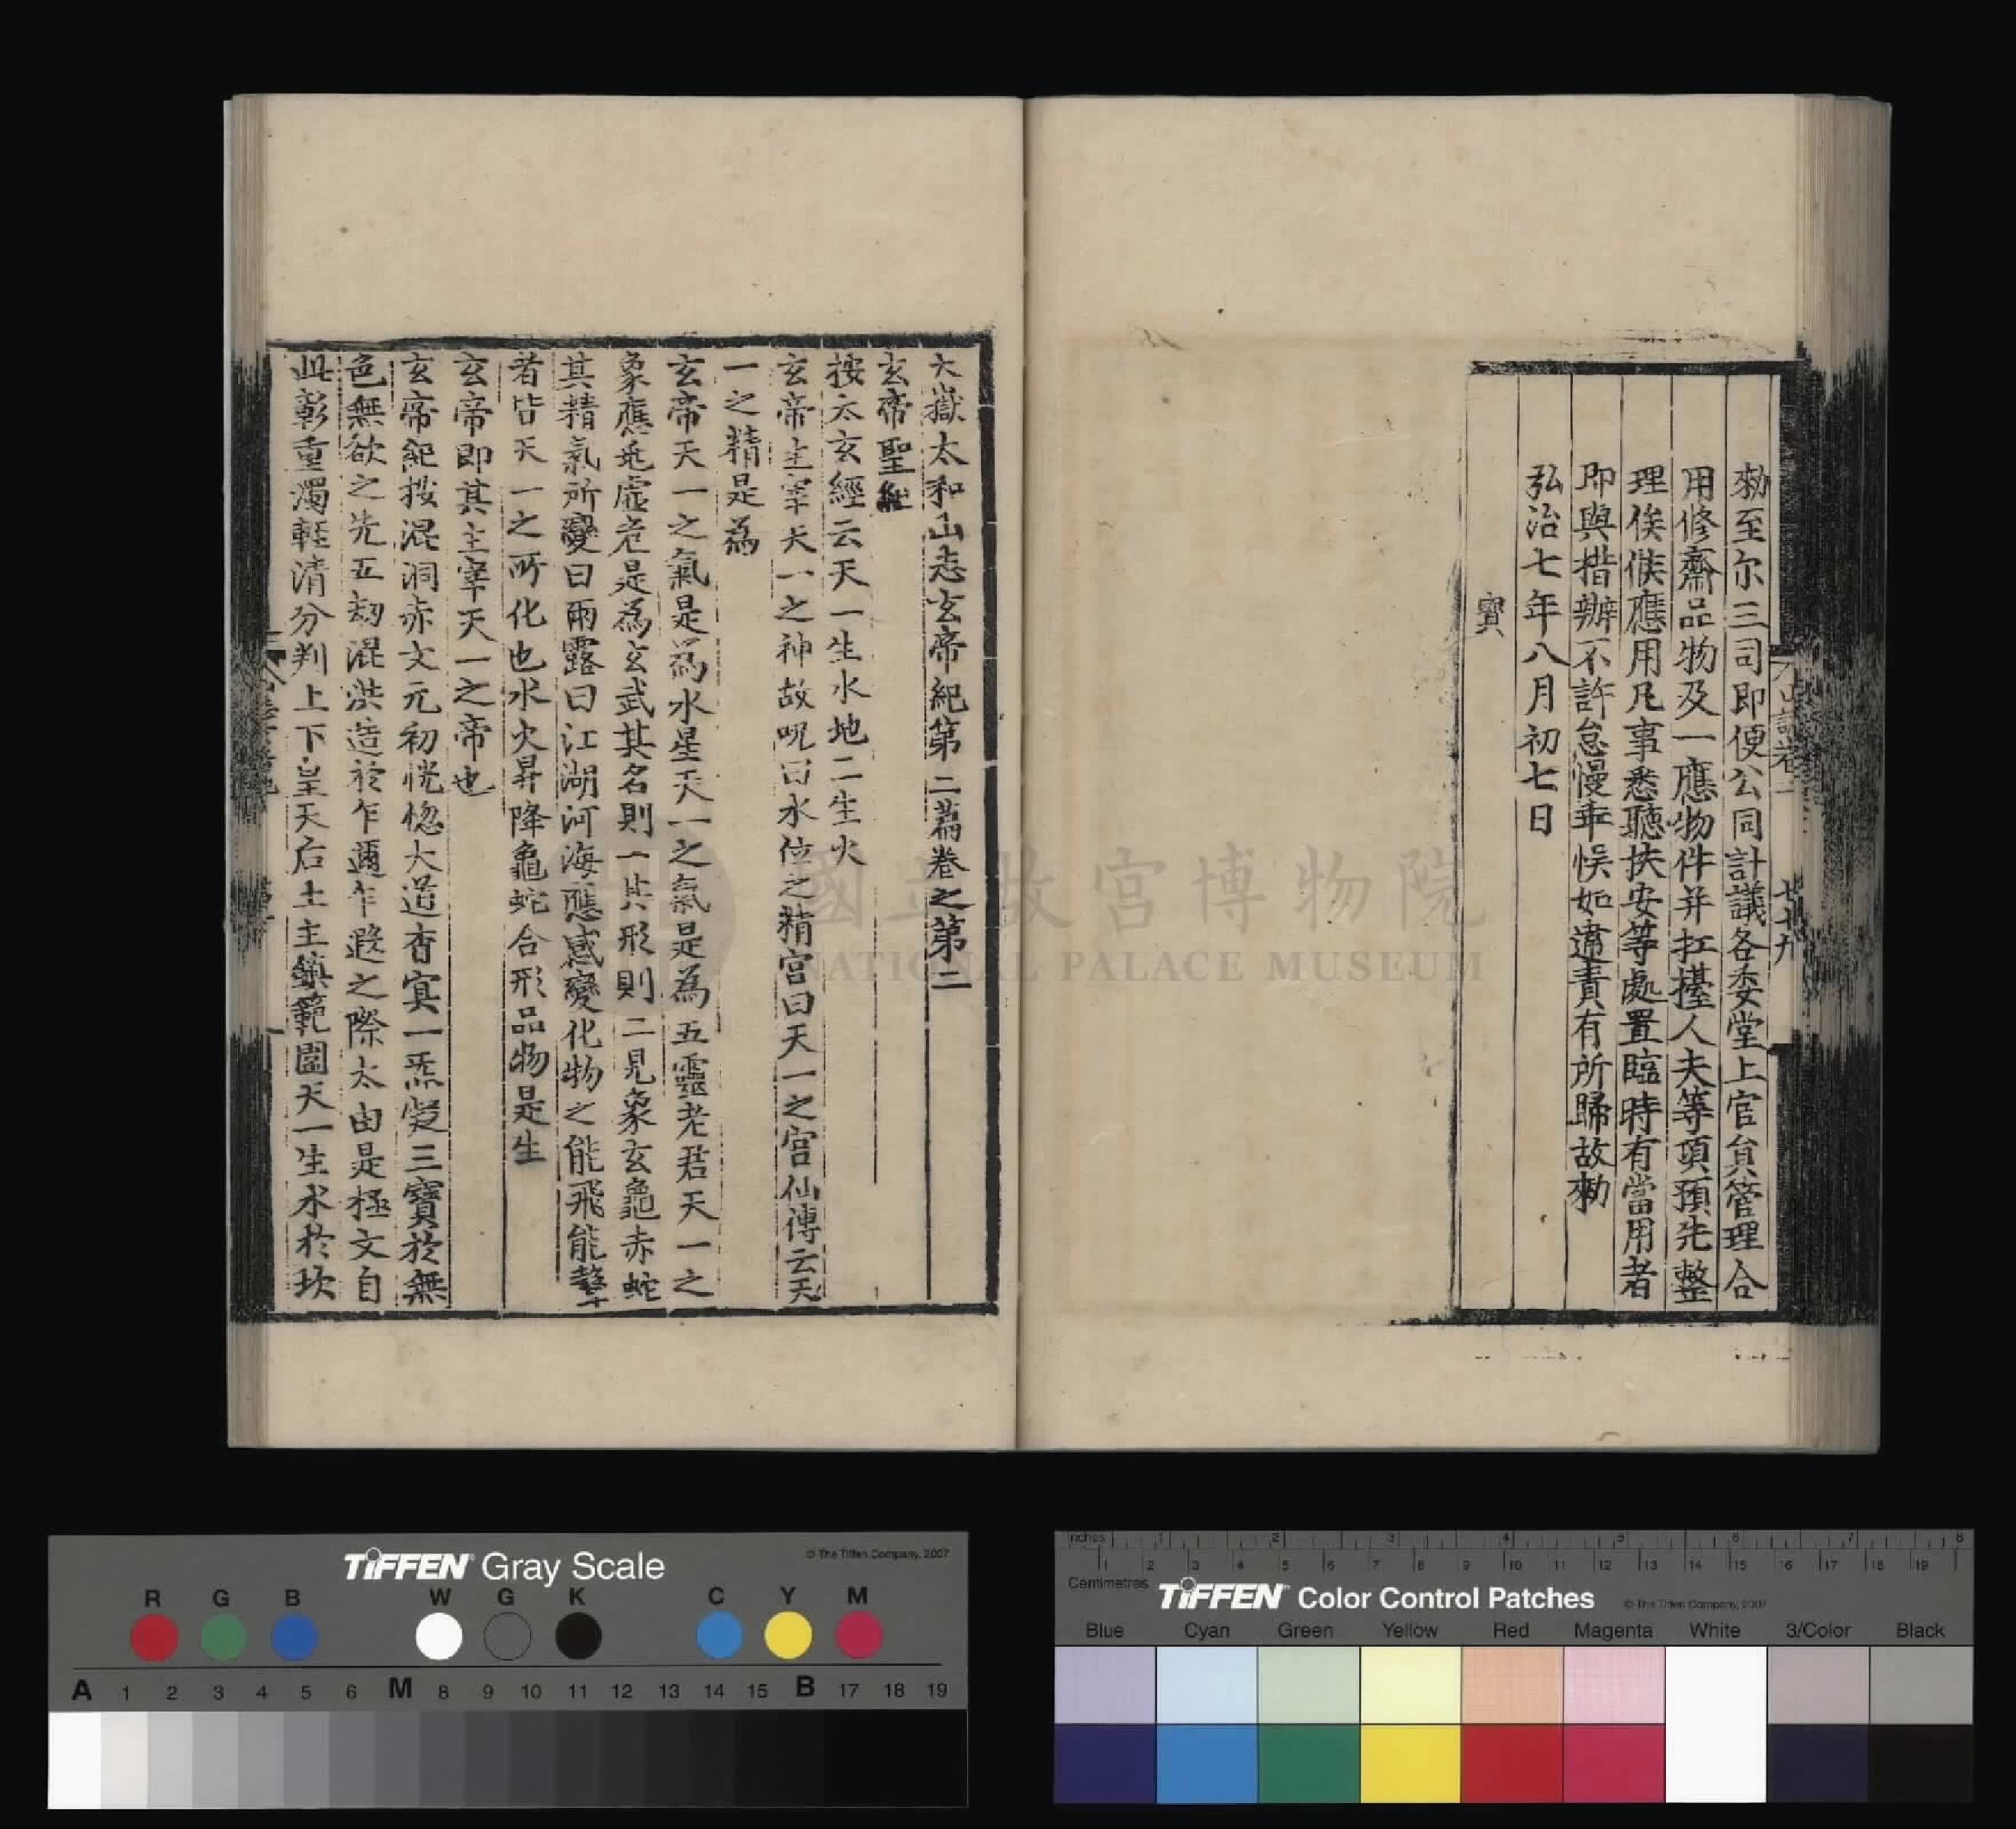 勑至尔三司即便公同計議各委堂上官員管理合
用修齋品物及一應物件并扛擡人夫等項預先整
理俟候應用凡事悉聽扶安等處置臨時有當用者
即與措辦不許怠慢乖悮如違責有所歸故勑
弘治七年八月初七日
寶
大嶽太和山志玄帝紀第二篇卷之第二
玄帝聖紀
按太玄經云天一生水地二生火
玄帝主宰天一之神故呪曰水位之精宮曰天一之宮仙傳云天
一之精是為
玄帝天一之氣是為水星天一之氣是為五靈老君天一之
象應兎虛危是為玄武其名則一其形則二見象玄龜赤蛇
其精氣所變曰雨露曰江湖河海應感變化物之能飛能
者皆天一之所化也水火昇降龜蛇合形品物是生
玄帝即其主宰天一之帝也
玄帝紀按混洞赤文元初恍惚大道杳冥一炁凝三寶於無
色無欲之先五劫混洪造於乍邇乍遐之際太由是極文自
此彰重濁輕清分判上下皇天后土主鎮範圍天一生水於坎
國立故宮博物院
NATIONAL PALACE MUSEUM
TIFFEN Gray Scale
© The Tiffen Company, 2007
R G B W G K C Y M
A 1 2 3 4 5 6 M 8 9 10 11 12 13 14 15 B 17 18 19
Inches 1 2 3 4 5 6 7 8
1 2 3 4 5 6 7 8 9 10 11 12 13 14 15 16 17 18 19
Centimetres
TIFFEN Color Control Patches
© The Tiffen Company, 2007
Blue Cyan Green Yellow Red Magenta White 3/Color Black